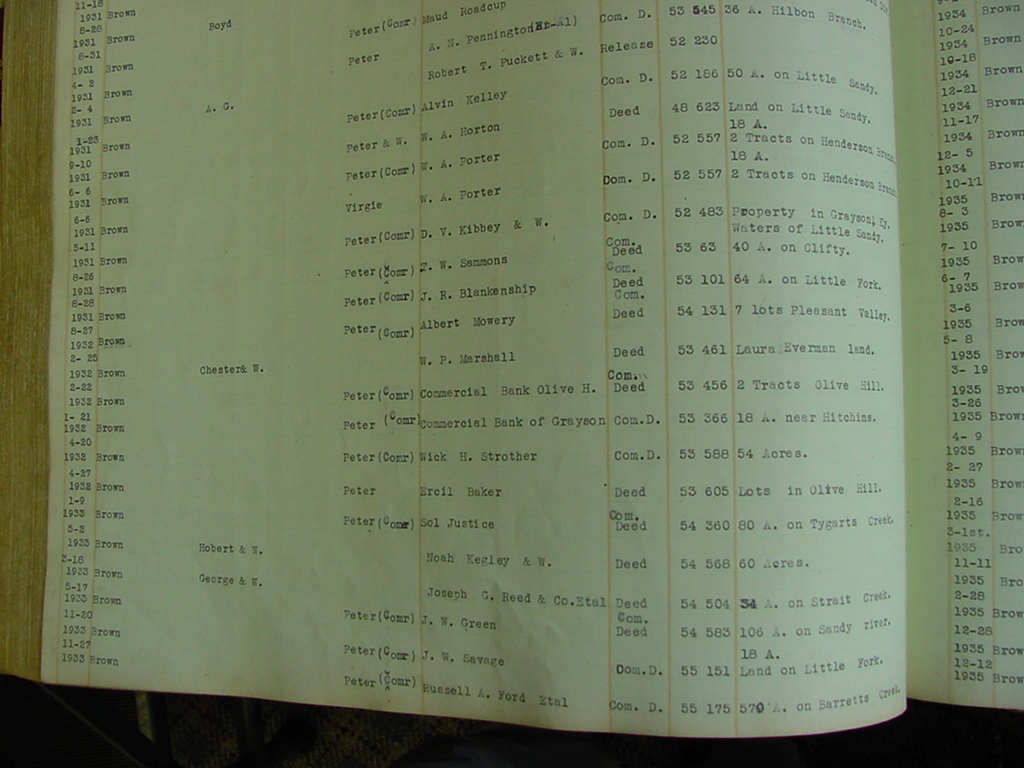 11-18
1931 Brown Peter(Comr) Maud Roadcup Com. D. 53 545 36 A. Hilbon Branch.
8-28
1931 Brown Boyd Peter A. N. Pennington(Et-Al) Release 52 230
8-31
1931 Brown Robert T. Puckett & W. Com. D. 52 186 50 A. on Little Sandy.
4- 2
1931 Brown A. G. Peter(Comr) Alvin Kelley Deed 48 623 Land on Little Sandy.
2- 4
1931 Brown Peter & W. W. A. Horton Com. D. 52 557 18 A. 2 Tracts on Henderson Branch
1-23
1931 Brown Peter(Comr) W. A. Porter Com. D. 52 557 18 A. 2 Tracts on Henderson Branch
9-10
1931 Brown Virgie W. A. Porter Com. D. 52 483 Property in Grayson, Ky.
6- 6
1931 Brown Peter(Comr) D. V. Kibbey & W. Com. Deed 53 63 Waters of Little Sandy. 40 A. on Clifty.
6-6
1931 Brown Peter(Comr) T. W. Sammons Com. Deed 53 101 64 A. on Little Fork.
5-11
1931 Brown Peter(Comr) J. R. Blankenship Com. Deed 54 131 7 lots Pleasant Valley.
8-26
1931 Brown Peter(Comr) Albert Mowery Deed 53 461 Laura Everman land.
8-28
1931 Brown W. P. Marshall Com. Deed 53 456 2 Tracts Olive Hill.
8-27
1932 Brown Chester& W. Peter(Comr) Commercial Bank Olive H. Com.D. 53 366 18 A. near Hitchins.
2- 25
1932 Brown Peter (Comr) Commercial Bank of Grayson Com.D. 53 588 54 Acres.
2-22
1932 Brown Peter(Comr) Wick H. Strother Deed 53 605 Lots in Olive Hill.
1- 21
1932 Brown Peter Ercil Baker Com. Deed 54 360 80 A. on Tygarts Creek.
4-20
1932 Brown Peter(Comr) Sol Justice Deed 54 568 60 Acres.
4-27
1932 Brown Hobert & W. Noah Kegley & W. Deed 54 504 34 A. on Strait Creek.
1-9
1933 Brown George & W. Joseph G. Reed & Co.Etal Com. Deed 54 583 106 A. on Sandy river.
5-2
1933 Brown Peter(Comr) J. W. Green Com.D. 55 151 18 A. Land on Little Fork.
3-18
1933 Brown Peter(Comr) J. W. Savage Com. D. 55 175 570 A. on Barretts Creek.
5-17
1933 Brown Peter(Comr) Russell A. Ford Etal
11-20
1933 Brown
11-27
1933 Brown
1934 Brown
10-24
1934 Brown
10-18
1934 Brown
12-21
1934 Brown
11-17
1934 Brown
12- 5
1934 Brown
10-11
1935 Brown
8- 3
1935 Brown
7- 10
1935 Brown
6- 7
1935 Brown
3-6
1935 Brown
5- 8
1935 Brown
3- 19
1935 Brown
3-26
1935 Brown
4- 9
1935 Brown
2- 27
1935 Brown
2-16
1935 Brown
3-1st.
1935 Bro
11-11
1935 Bro
2-28
1935 Brow
12-28
1935 Brow
12-12
1935 Brow